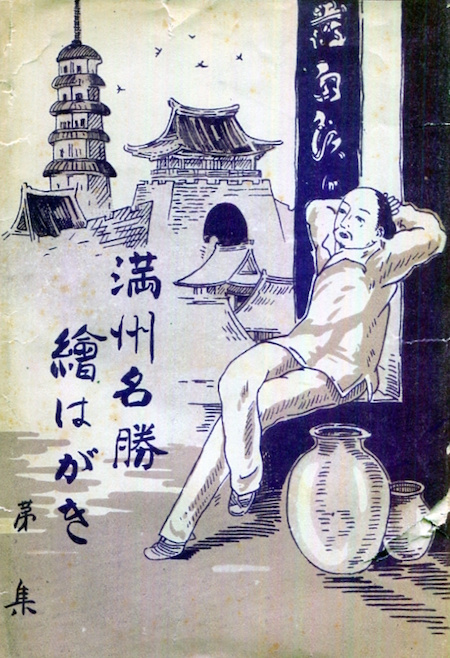 満州名勝
繪はがき
第 集